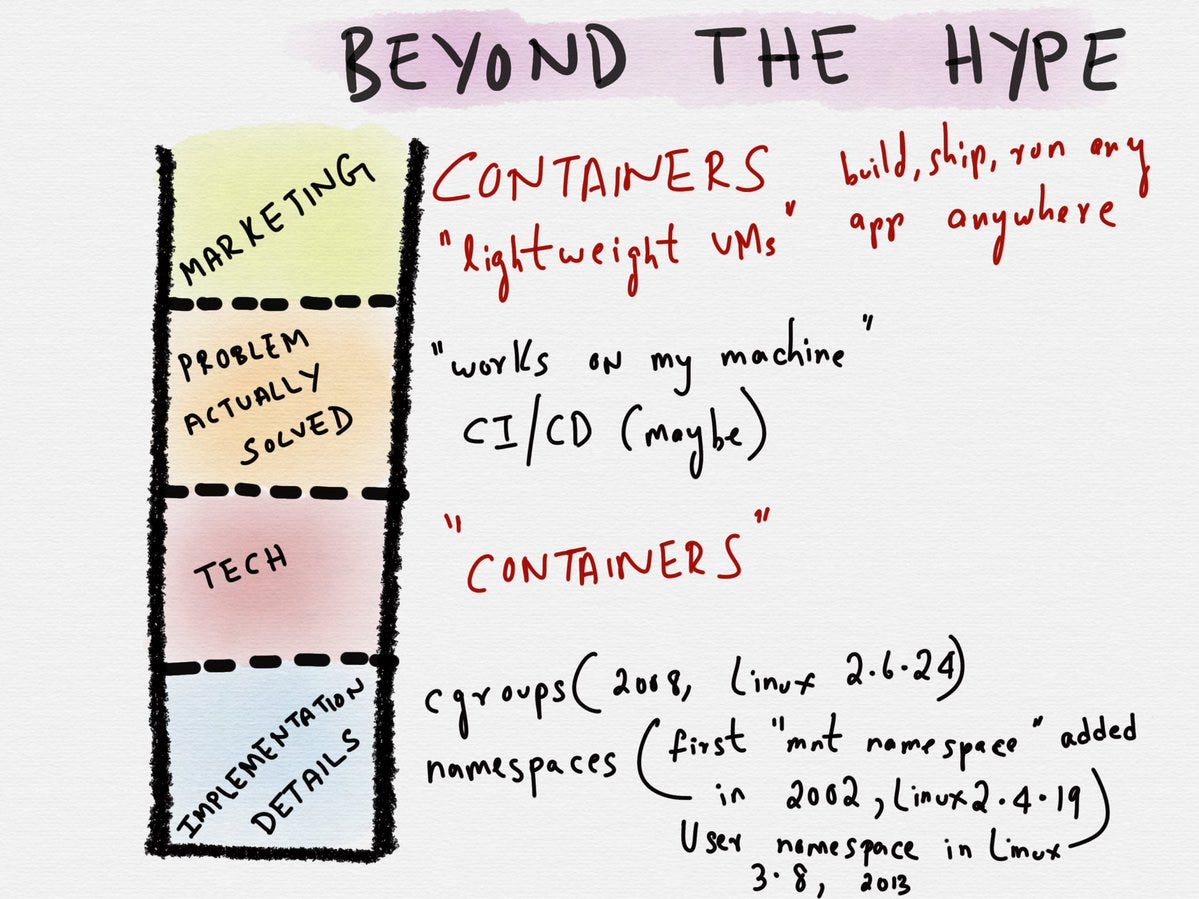 BEYOND THE HYPE
MARKETING
CONTAINERS
"lightweight VMs"
build, ship, run any
app anywhere
PROBLEM
ACTUALLY
SOLVED
"works on my machine"
CI/CD (maybe)
TECH
"CONTAINERS"
IMPLEMENTATION
DETAILS
cgroups (2008, Linux 2.6.24)
namespaces (first "mnt namespace" added
in 2002, Linux 2.4.19)
User namespace in Linux
3.8, 2013